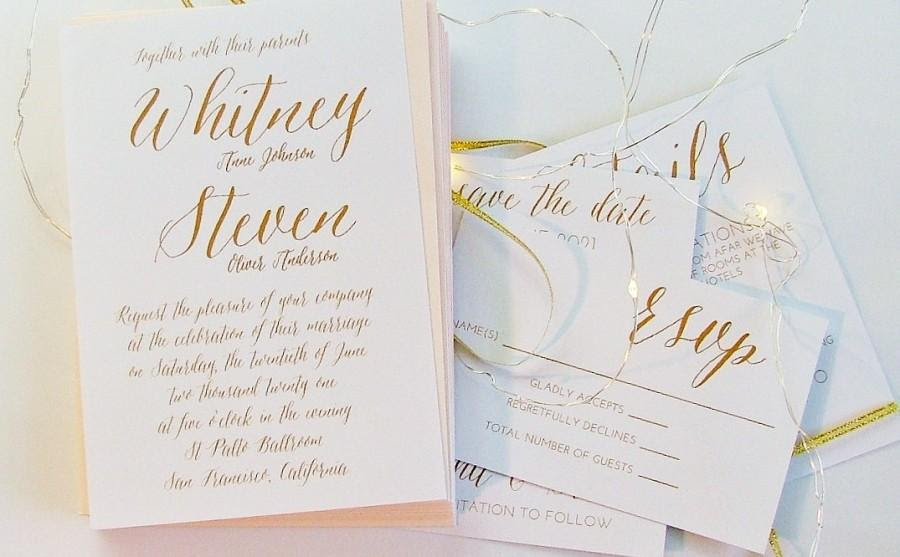 Together with their parents
Whitney
Anne Johnson
Steven
Oliver Anderson
Request the pleasure of your company
at the celebration of their marriage
on Saturday, the twentieth of June
two thousand twenty one
at five o'clock in the evening
St Pallo Ballroom
San Francisco, California
save the date
2021
NAME(S)
rsvp
GLADLY ACCEPTS
REGRETFULLY DECLINES
TOTAL NUMBER OF GUESTS
ITATION TO FOLLOW
tails
ATIONS
OM AFAR WE HAVE
F ROOMS AT THE
HOTELS